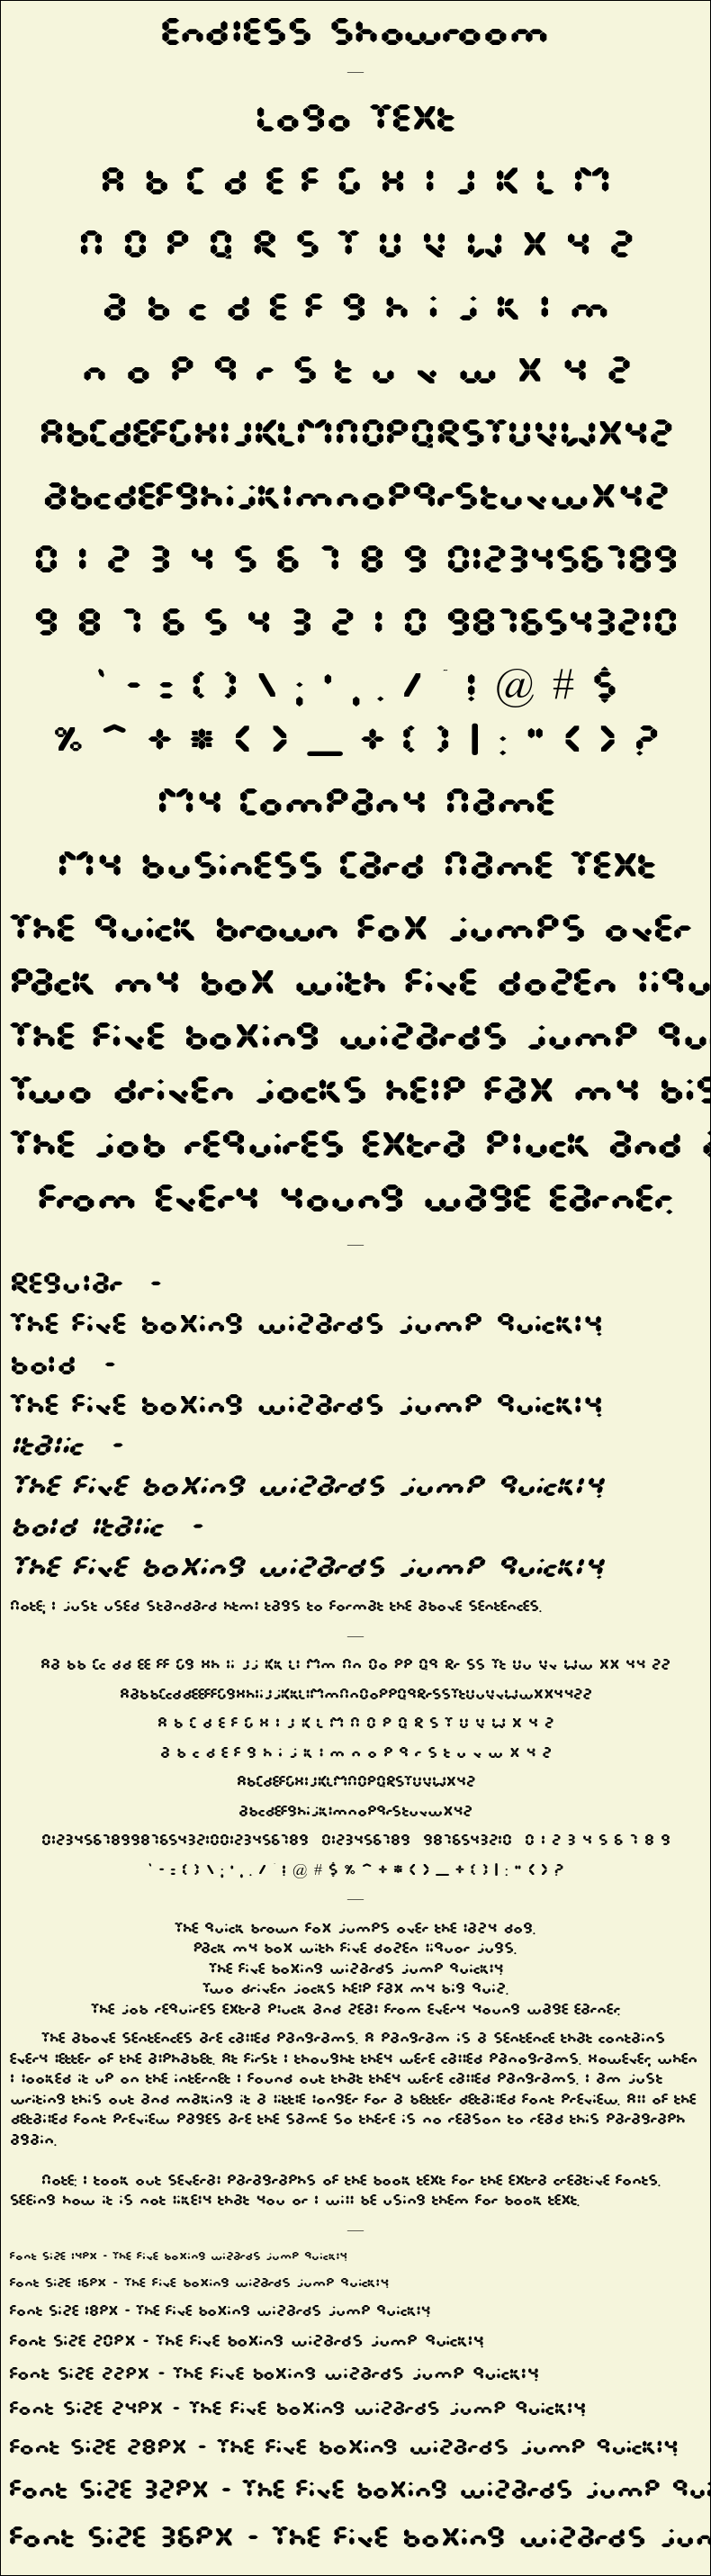 Endless Showroom
—
Logo Text
A B C D E F G H I J K L M
N O P Q R S T U V W X Y Z
a b c d e f g h i j k l m
n o p q r s t u v w x y z
ABCDEFGHIJKLMNOPQRSTUVWXYZ
abcdefghijklmnopqrstuvwxyz
0 1 2 3 4 5 6 7 8 9 0123456789
9 8 7 6 5 4 3 2 1 0 9876543210
` - = { } \ ; ' , . / ¯ ! @ # $
% ^ + * ( ) _ + { } | : " ( ) ?
My Company Name
My Business Card Name Text
The quick brown fox jumps over
Pack my box with five dozen liqu
The five boxing wizards jump qu
Two driven jocks help fax my big
The job requires extra pluck and z
from every young wage earner.
—
Regular -
The five boxing wizards jump quickly.
Bold -
The five boxing wizards jump quickly.
Italic -
The five boxing wizards jump quickly.
Bold Italic -
The five boxing wizards jump quickly.
Note; I just used standard html tags to format the above sentences.
—
Aa Bb Cc Dd Ee Ff Gg Hh Ii Jj Kk Ll Mm Nn Oo Pp Qq Rr Ss Tt Uu Vv Ww Xx Yy Zz
AaBbCcDdEeFfGgHhIiJjKkLlMmNnOoPpQqRrSsTtUuVvWwXxYyZz
A B C D E F G H I J K L M N O P Q R S T U V W X Y Z
a b c d e f g h i j k l m n o p q r s t u v w x y z
ABCDEFGHIJKLMNOPQRSTUVWXYZ
abcdefghijklmnopqrstuvwxyz
012345678998765432100123456789 0123456789 9876543210 0 1 2 3 4 5 6 7 8 9
` - = { } \ ; ' , . / ¯ ! @ # $ % ^ + * ( ) _ + { } | : " ( ) ?
—
The quick brown fox jumps over the lazy dog.
Pack my box with five dozen liquor jugs.
The five boxing wizards jump quickly.
Two driven jocks help fax my big quiz.
The job requires extra pluck and zeal from every young wage earner.
The above sentences are called pangrams. A pangram is a sentence that contains
every letter of the alphabet. At first I thought they were called panograms. However, when
I looked it up on the internet I found out that they were called pangrams. I am just
writing this out and making it a little longer for a better detailed font preview. All of the
detailed font preview pages are the same so there is no reason to read this paragraph
again.
Note: I took out several paragraphs of the book text for the extra creative fonts.
Seeing how it is not likely that you or I will be using them for book text.
—
Font Size 14px - The five boxing wizards jump quickly.
Font Size 16px - The five boxing wizards jump quickly.
Font Size 18px - The five boxing wizards jump quickly.
Font Size 20px - The five boxing wizards jump quickly.
Font Size 22px - The five boxing wizards jump quickly.
Font Size 24px - The five boxing wizards jump quickly.
Font Size 28px - The five boxing wizards jump quickly.
Font Size 32px - The five boxing wizards jump qui
Font Size 36px - The five boxing wizards jun